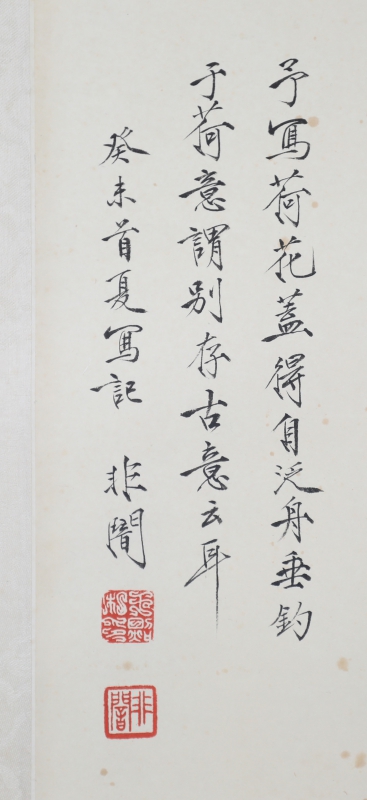 予寫荷花蓋得自泛舟垂釣
于荷意謂別存古意云耳
癸未首夏寫記 非闇
非闇